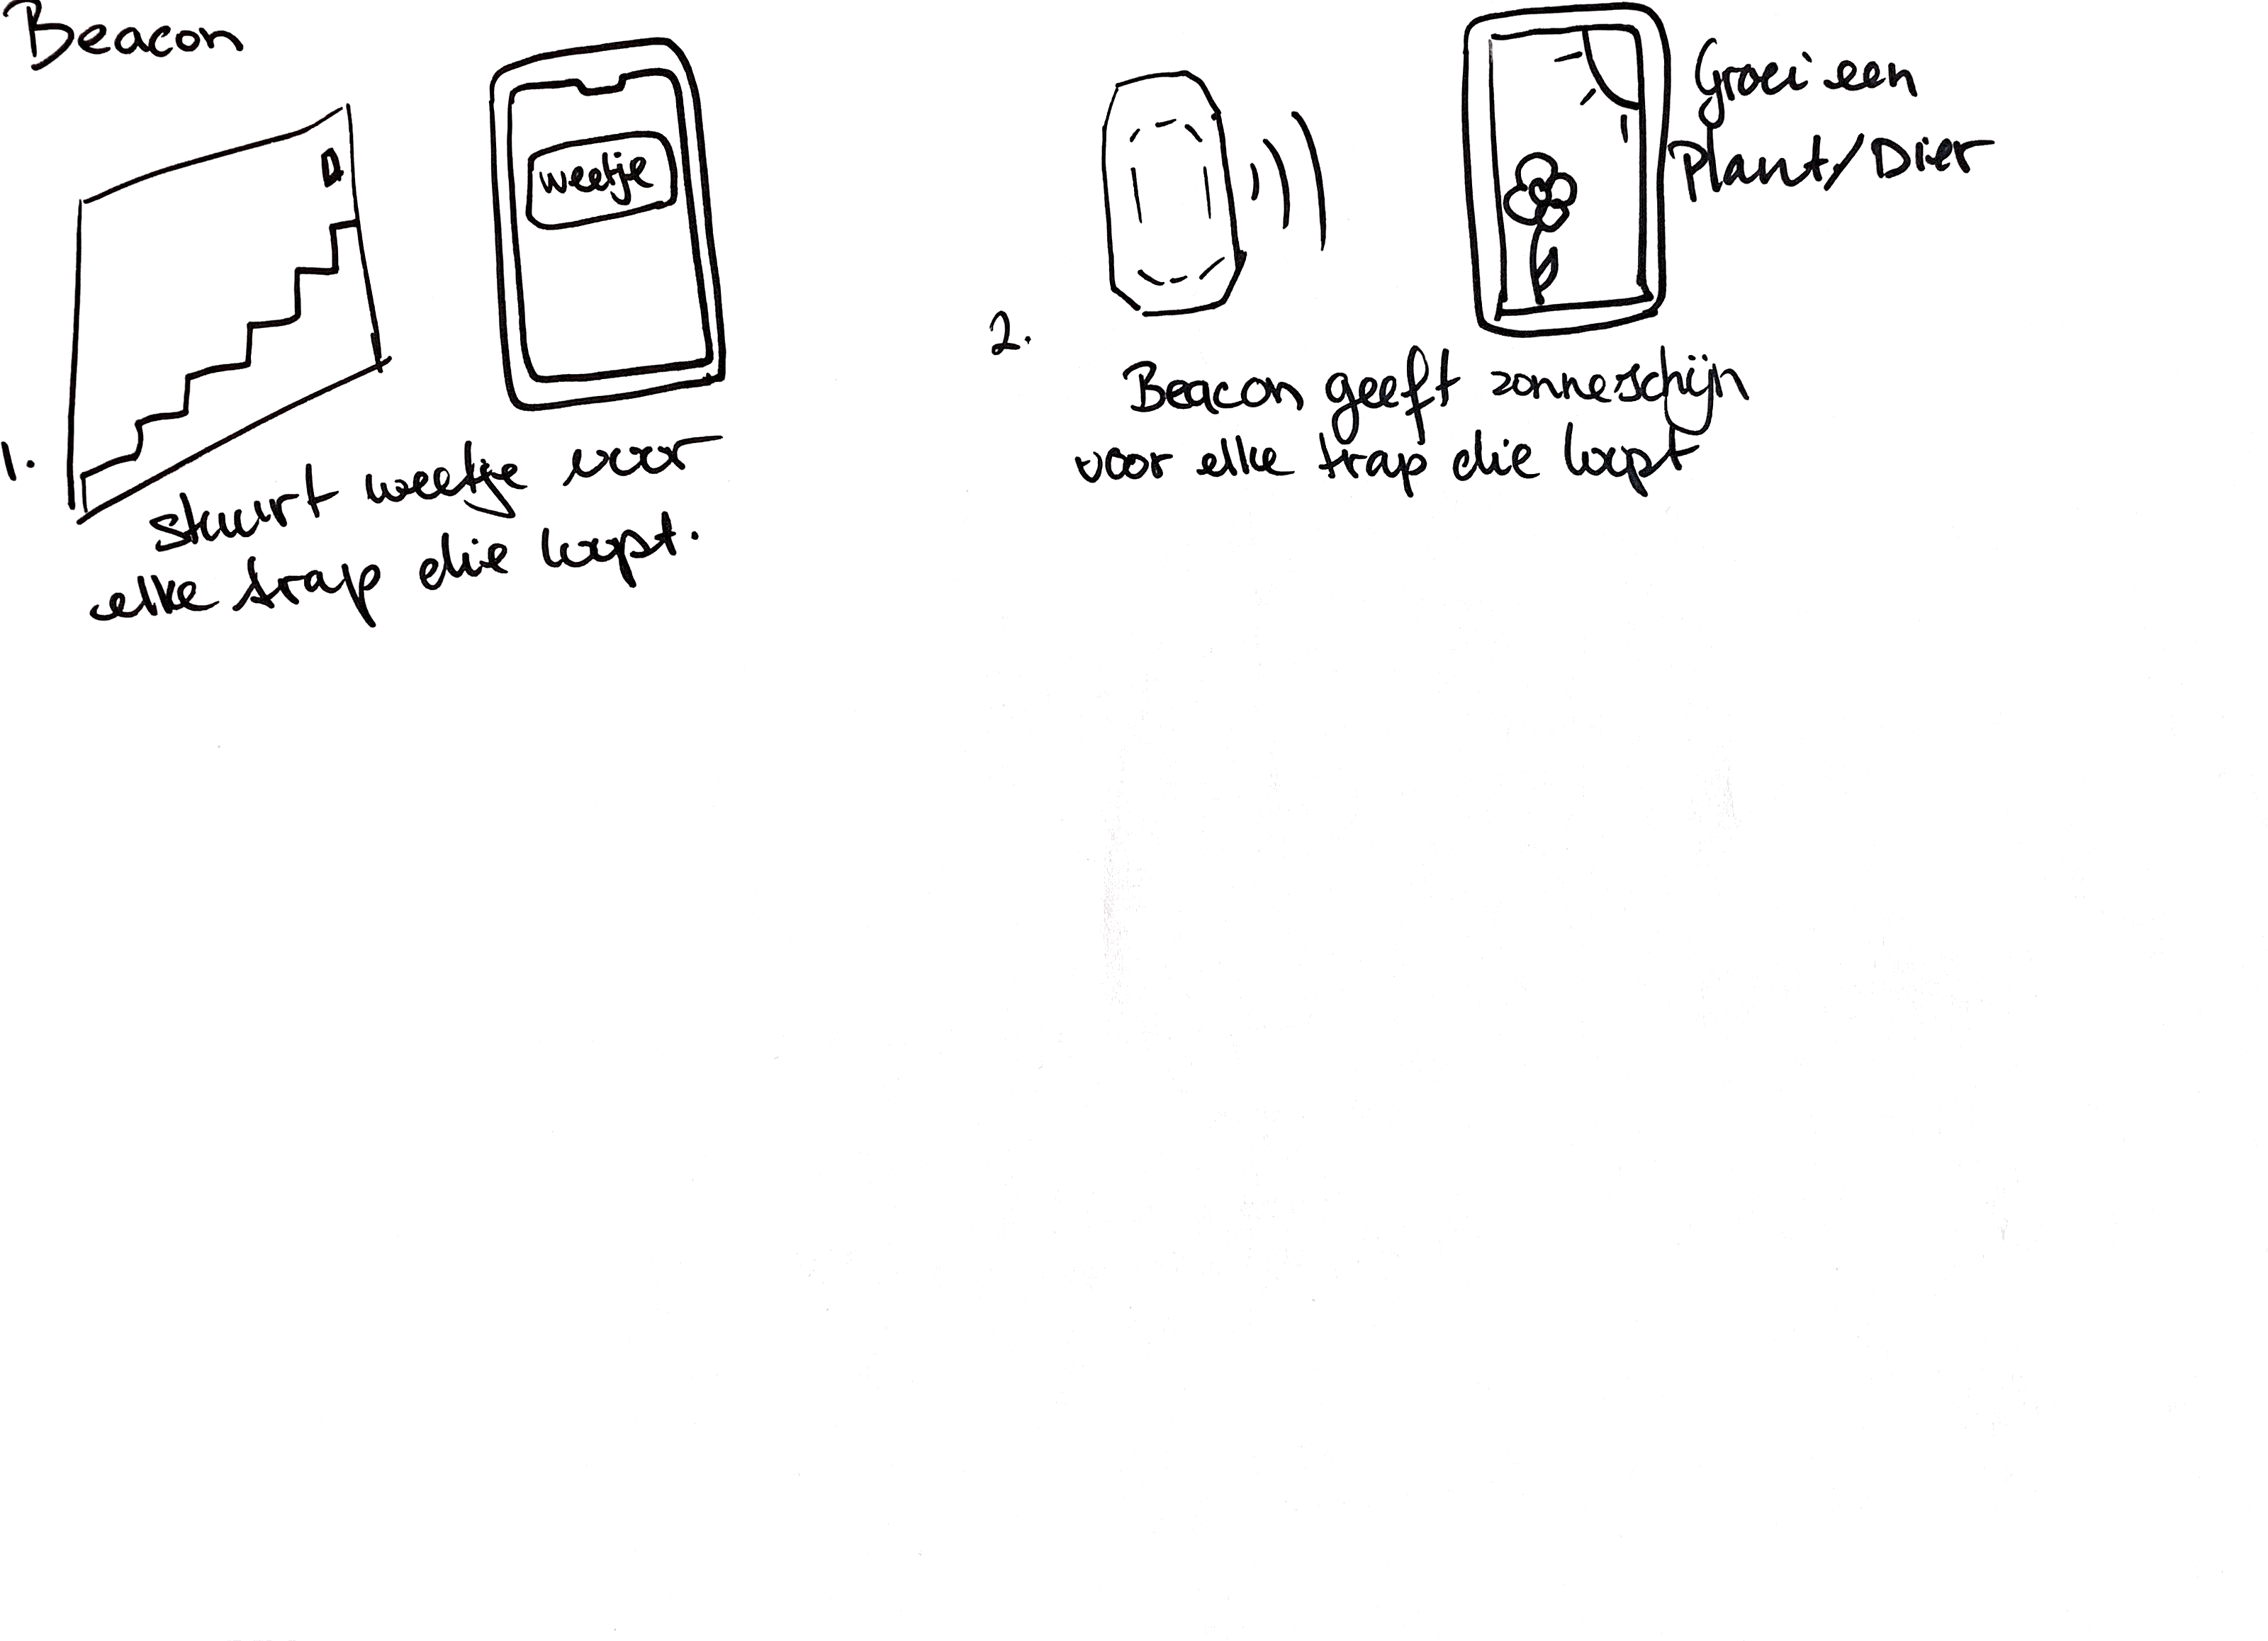 Beacon
weetje
1.
stuurt weetje voor
elke trap die loopt.
2.
Groei een
Plant/Dier
Beacon geeft zonneschijn
voor elke trap die loopt